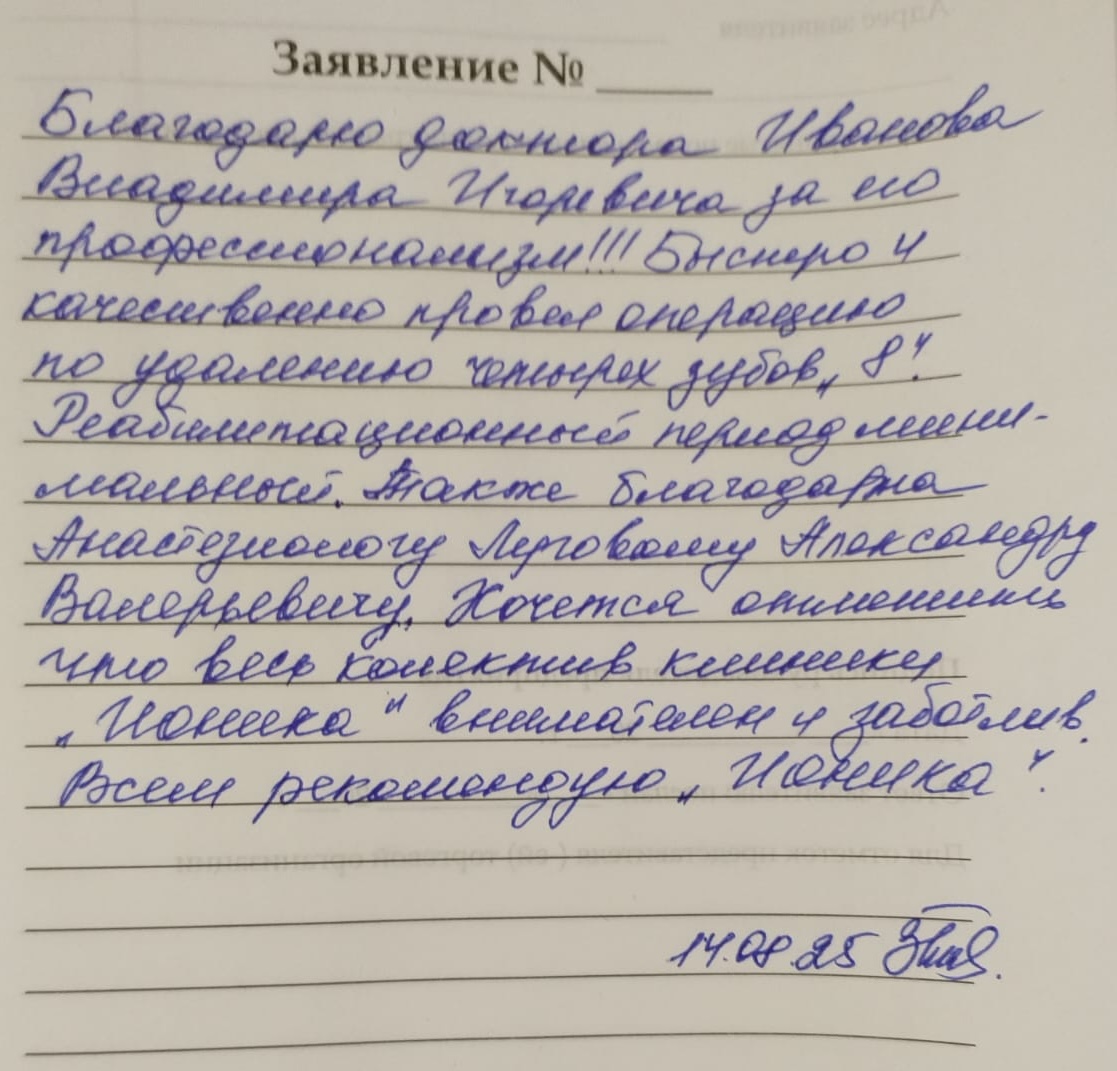 Заявление № ____
Благодарю доктора Иванова
Владимира Игоревича за его
профессионализм!!! Быстро и
качественно провел операцию
по удалению четырех зубов „8“.
Реабилитационный период мини-
мальный. Также благодарна
Анастезиологу Луговому Александру
Валерьевичу. Хочется отметить
что весь колектив клиники
„Ионика“ внимателен и заботлив.
Всем рекомендую „Ионика“.
14.08.25